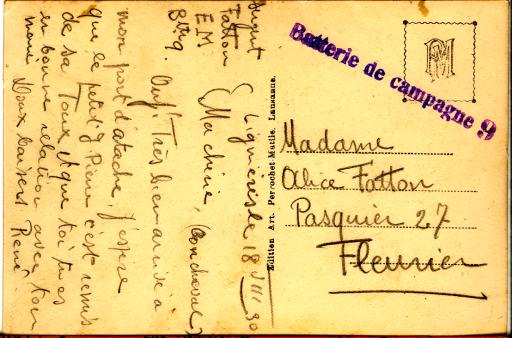 Sergent
Fatton
EM
Lignières le 18 VIII 30
Ma chérie,
Très bien arrivée à
mon port d'atache, J'espère
que le petit J Pierre c'est remis
de sa Toux et que toi tu es
en bonne relation avec ton
Doux baisers René
Batterie de campagne 9
Edition Art. Perrochet-Matile, Lausanne.
Madame
Alice Fatton
Pasquier 27
Fleurier